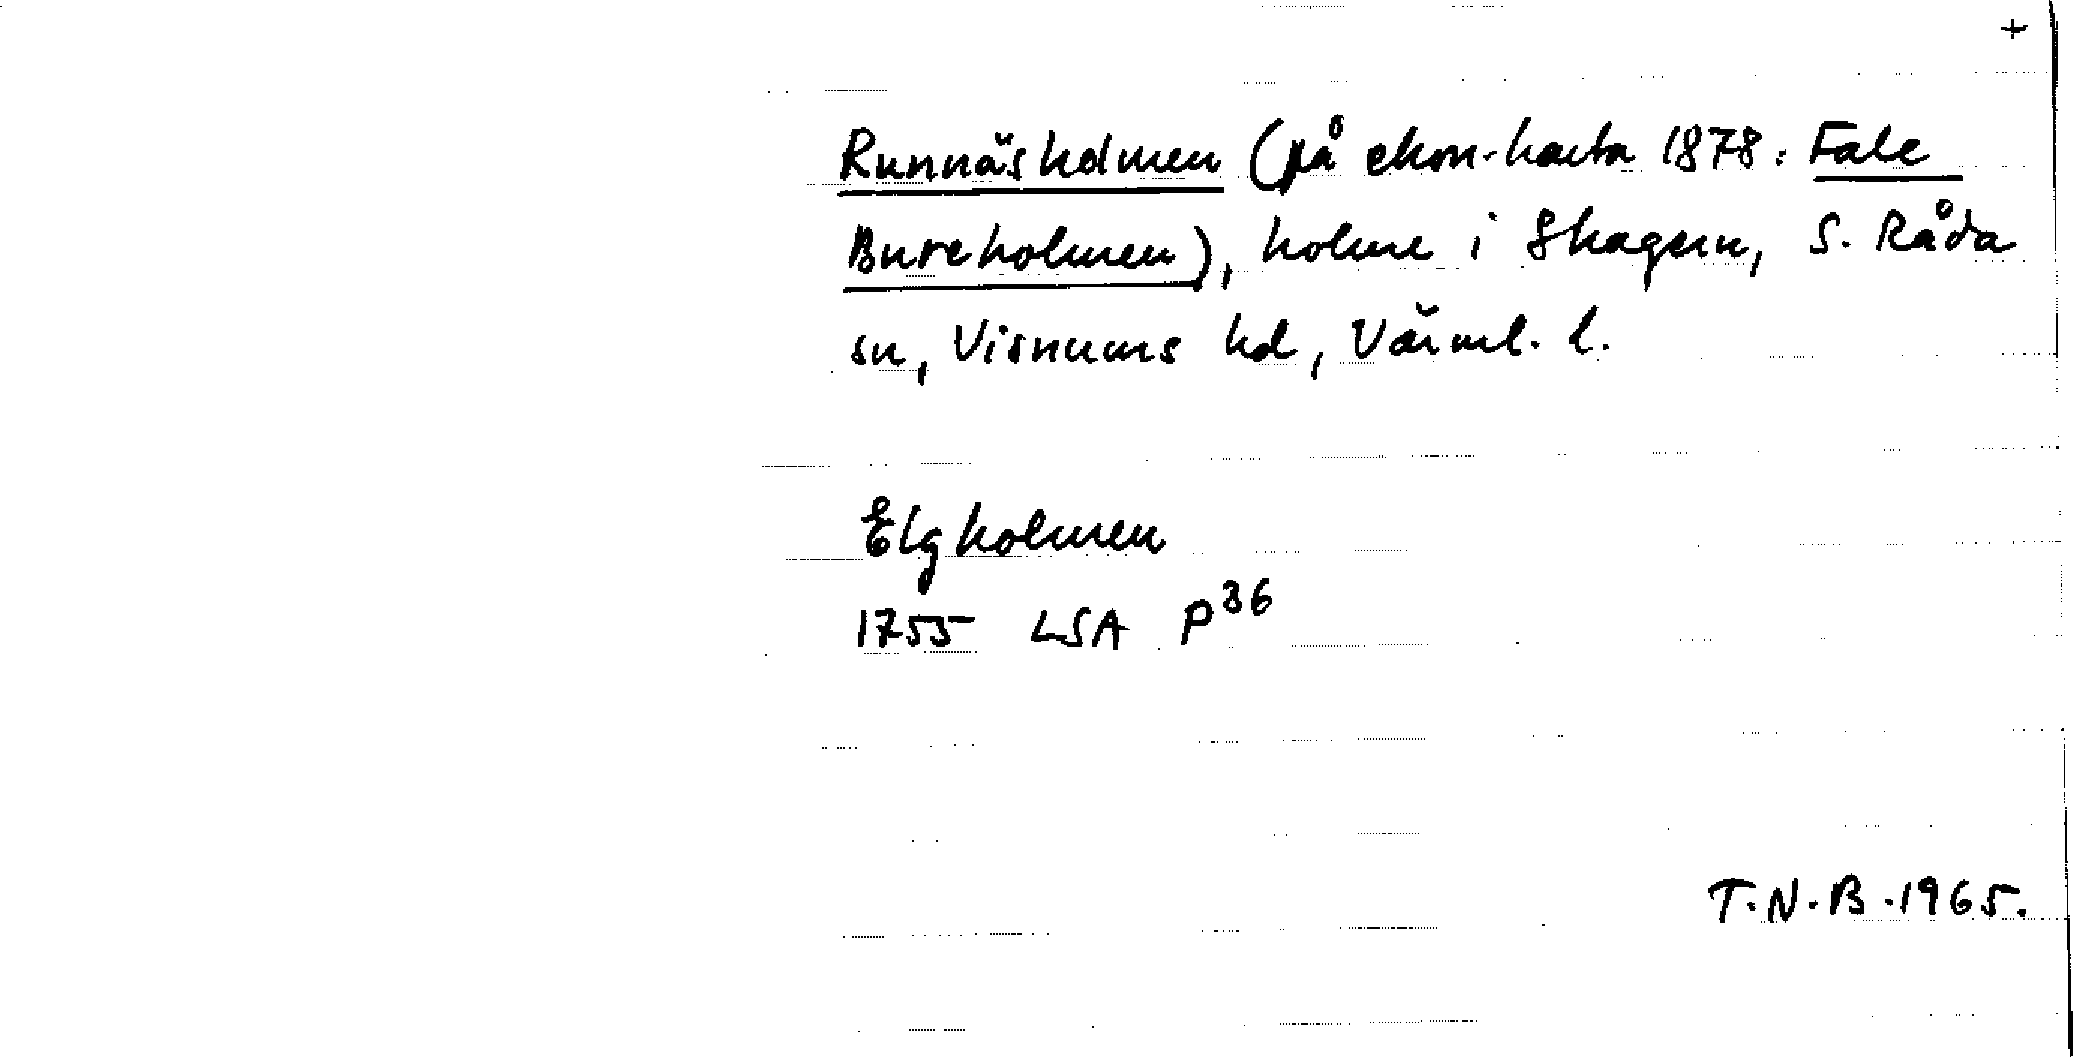 +
Runnäsholmen (på ekon. karta 1878: Fale
Bureholmen), holme i Skagern, S. Råda
sn, Visnums hd, Värml. l.
Elgholmen
1755 LSA P36
T.N.B. 1965.